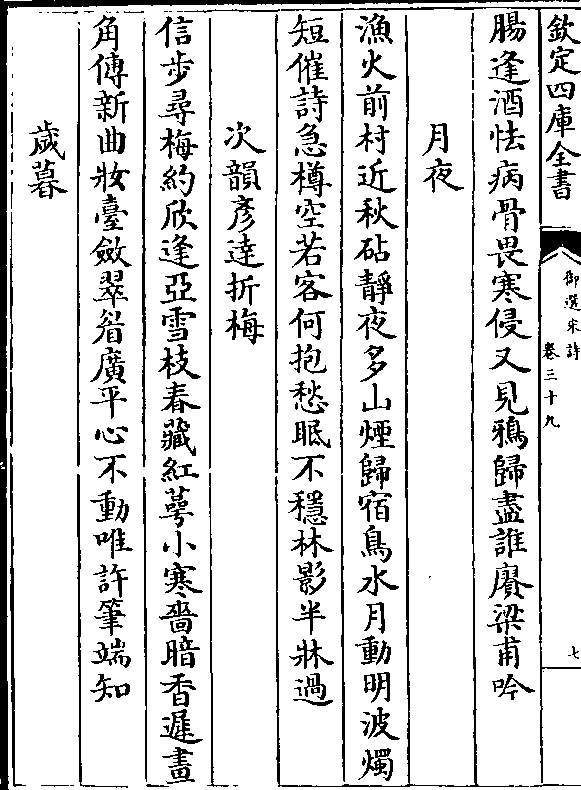 欽定四庫全書
御選宋詩
卷三十九
七
腸逢酒怯病骨畏寒侵又見鴉歸盡誰賡梁甫吟
月夜
漁火前村近秋砧靜夜多山煙歸宿鳥水月動明波燭
短催詩急樽空若客何抱愁眠不穩林影半牀過
次韻彥達折梅
信步尋梅約欣逢亞雪枝春藏紅萼小寒嗇暗香遲畫
角傳新曲妝臺斂翠眉廣平心不動唯許筆端知
歲暮